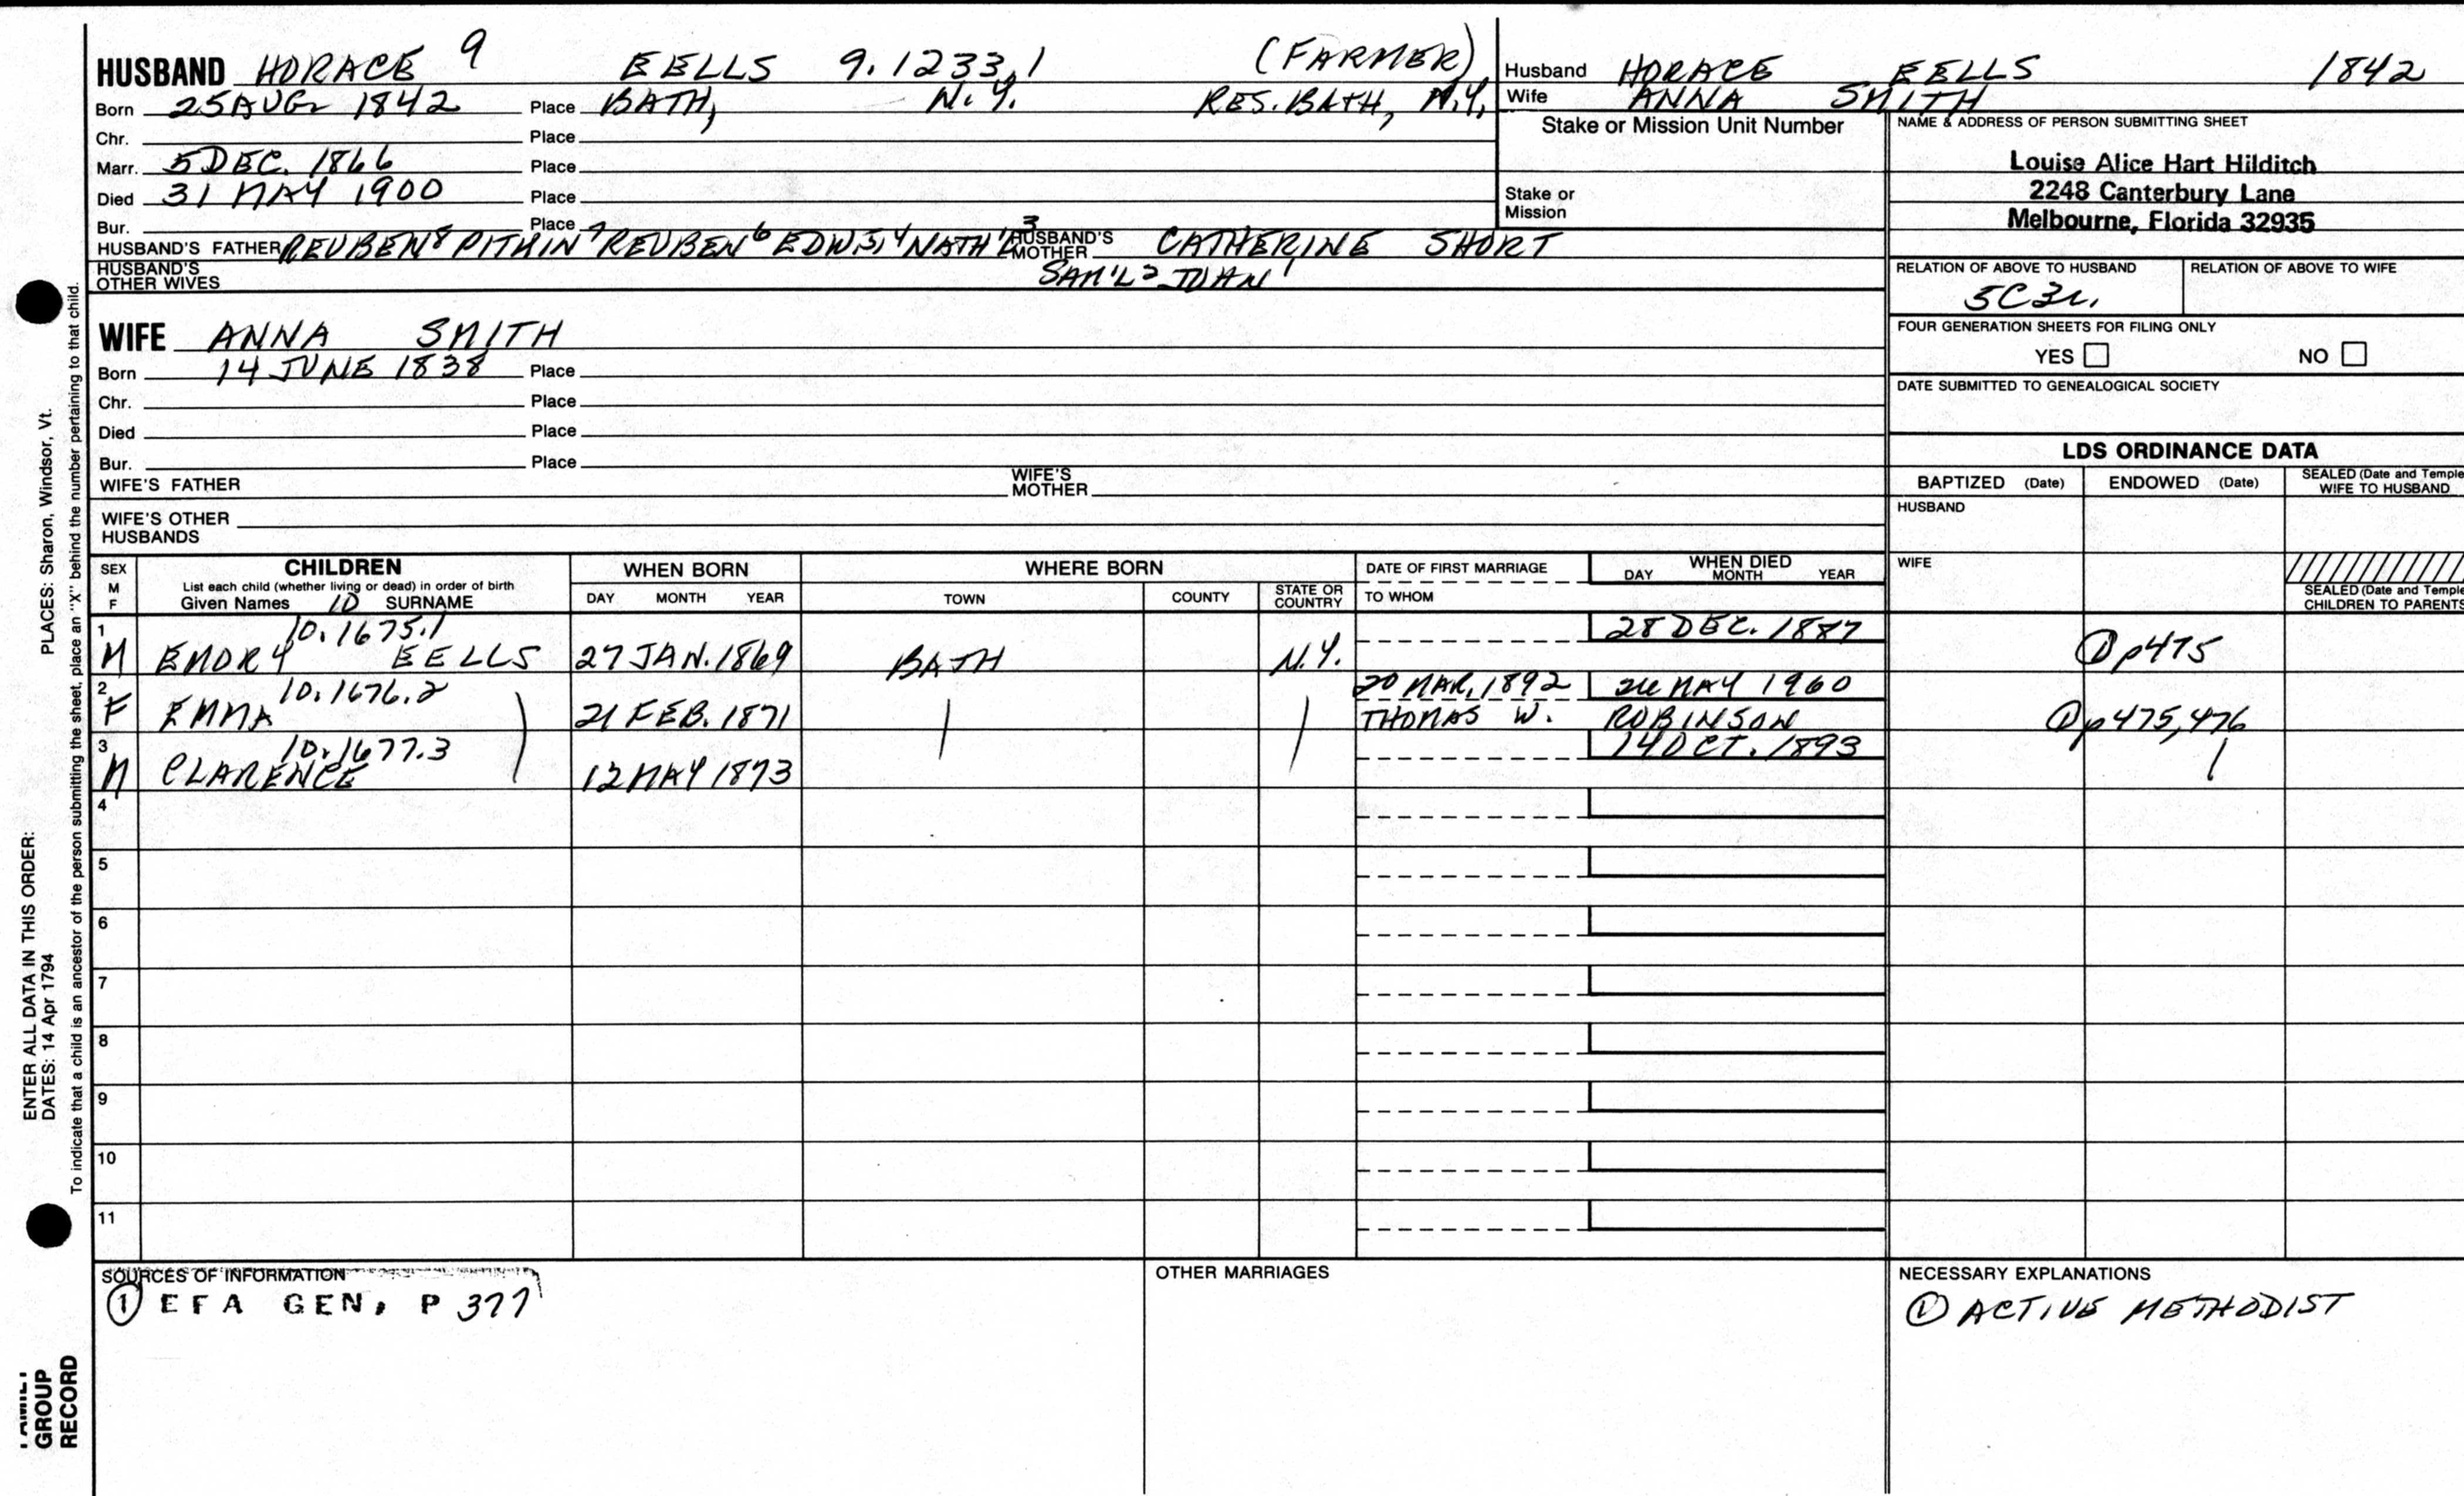 HUSBAND HORACE 9 EELLS 9.1233.1 (FARMER)
Born 25 AUG 1842 Place BATH, N.Y. RES. BATH, N.Y.
Chr. Place
Marr. 5 DEC. 1866 Place
Died 31 MAY 1900 Place
Bur. Place
HUSBAND'S FATHER REUBEN 8 PITKIN 7 REUBEN 6 EDW. 5, 4 NATH'L 3 HUSBAND'S MOTHER CATHERINE SHORT
HUSBAND'S OTHER WIVES SAM'L 2 JOHN 1
WIFE ANNA SMITH
Born 14 JUNE 1838 Place
Chr. Place
Died Place
Bur. Place
WIFE'S FATHER WIFE'S MOTHER
WIFE'S OTHER HUSBANDS
Husband HORACE EELLS 1842
Wife ANNA SMITH
Stake or Mission Unit Number
Stake or Mission
NAME & ADDRESS OF PERSON SUBMITTING SHEET
Louise Alice Hart Hilditch
2248 Canterbury Lane
Melbourne, Florida 32935
RELATION OF ABOVE TO HUSBAND RELATION OF ABOVE TO WIFE
5C3r.
FOUR GENERATION SHEETS FOR FILING ONLY
YES NO
DATE SUBMITTED TO GENEALOGICAL SOCIETY
LDS ORDINANCE DATA
BAPTIZED (Date) ENDOWED (Date) SEALED (Date and Temple
WIFE TO HUSBAND
HUSBAND
WIFE
SEALED (Date and Temple
CHILDREN TO PARENTS
SEX M F CHILDREN WHEN BORN WHERE BORN DATE OF FIRST MARRIAGE WHEN DIED
List each child (whether living or dead) in order of birth
Given Names 10 SURNAME DAY MONTH YEAR TOWN COUNTY STATE OR COUNTRY TO WHOM DAY MONTH YEAR
1 10.1675.1 28 DEC. 1887
M EMORY EELLS 27 JAN. 1869 BATH N.Y. ① p475
2 10.1676.2 20 MAR. 1892 MAY 1960
F EMMA 21 FEB. 1871 THOMAS W. ROBINSON ① p475,476
3 10.1677.3 14 OCT. 1893
M CLARENCE 12 MAY 1873
4
5
6
7
8
9
10
11
SOURCES OF INFORMATION
① EFA GEN, P 377
OTHER MARRIAGES
NECESSARY EXPLANATIONS
① ACTIVE METHODIST
PLACES: Sharon, Windsor, Vt.
ENTER ALL DATA IN THIS ORDER:
DATES: 14 Apr 1794
To indicate that a child is an ancestor of the person submitting the sheet, place an "X" behind the number pertaining to that child.
FAMILY
GROUP
RECORD